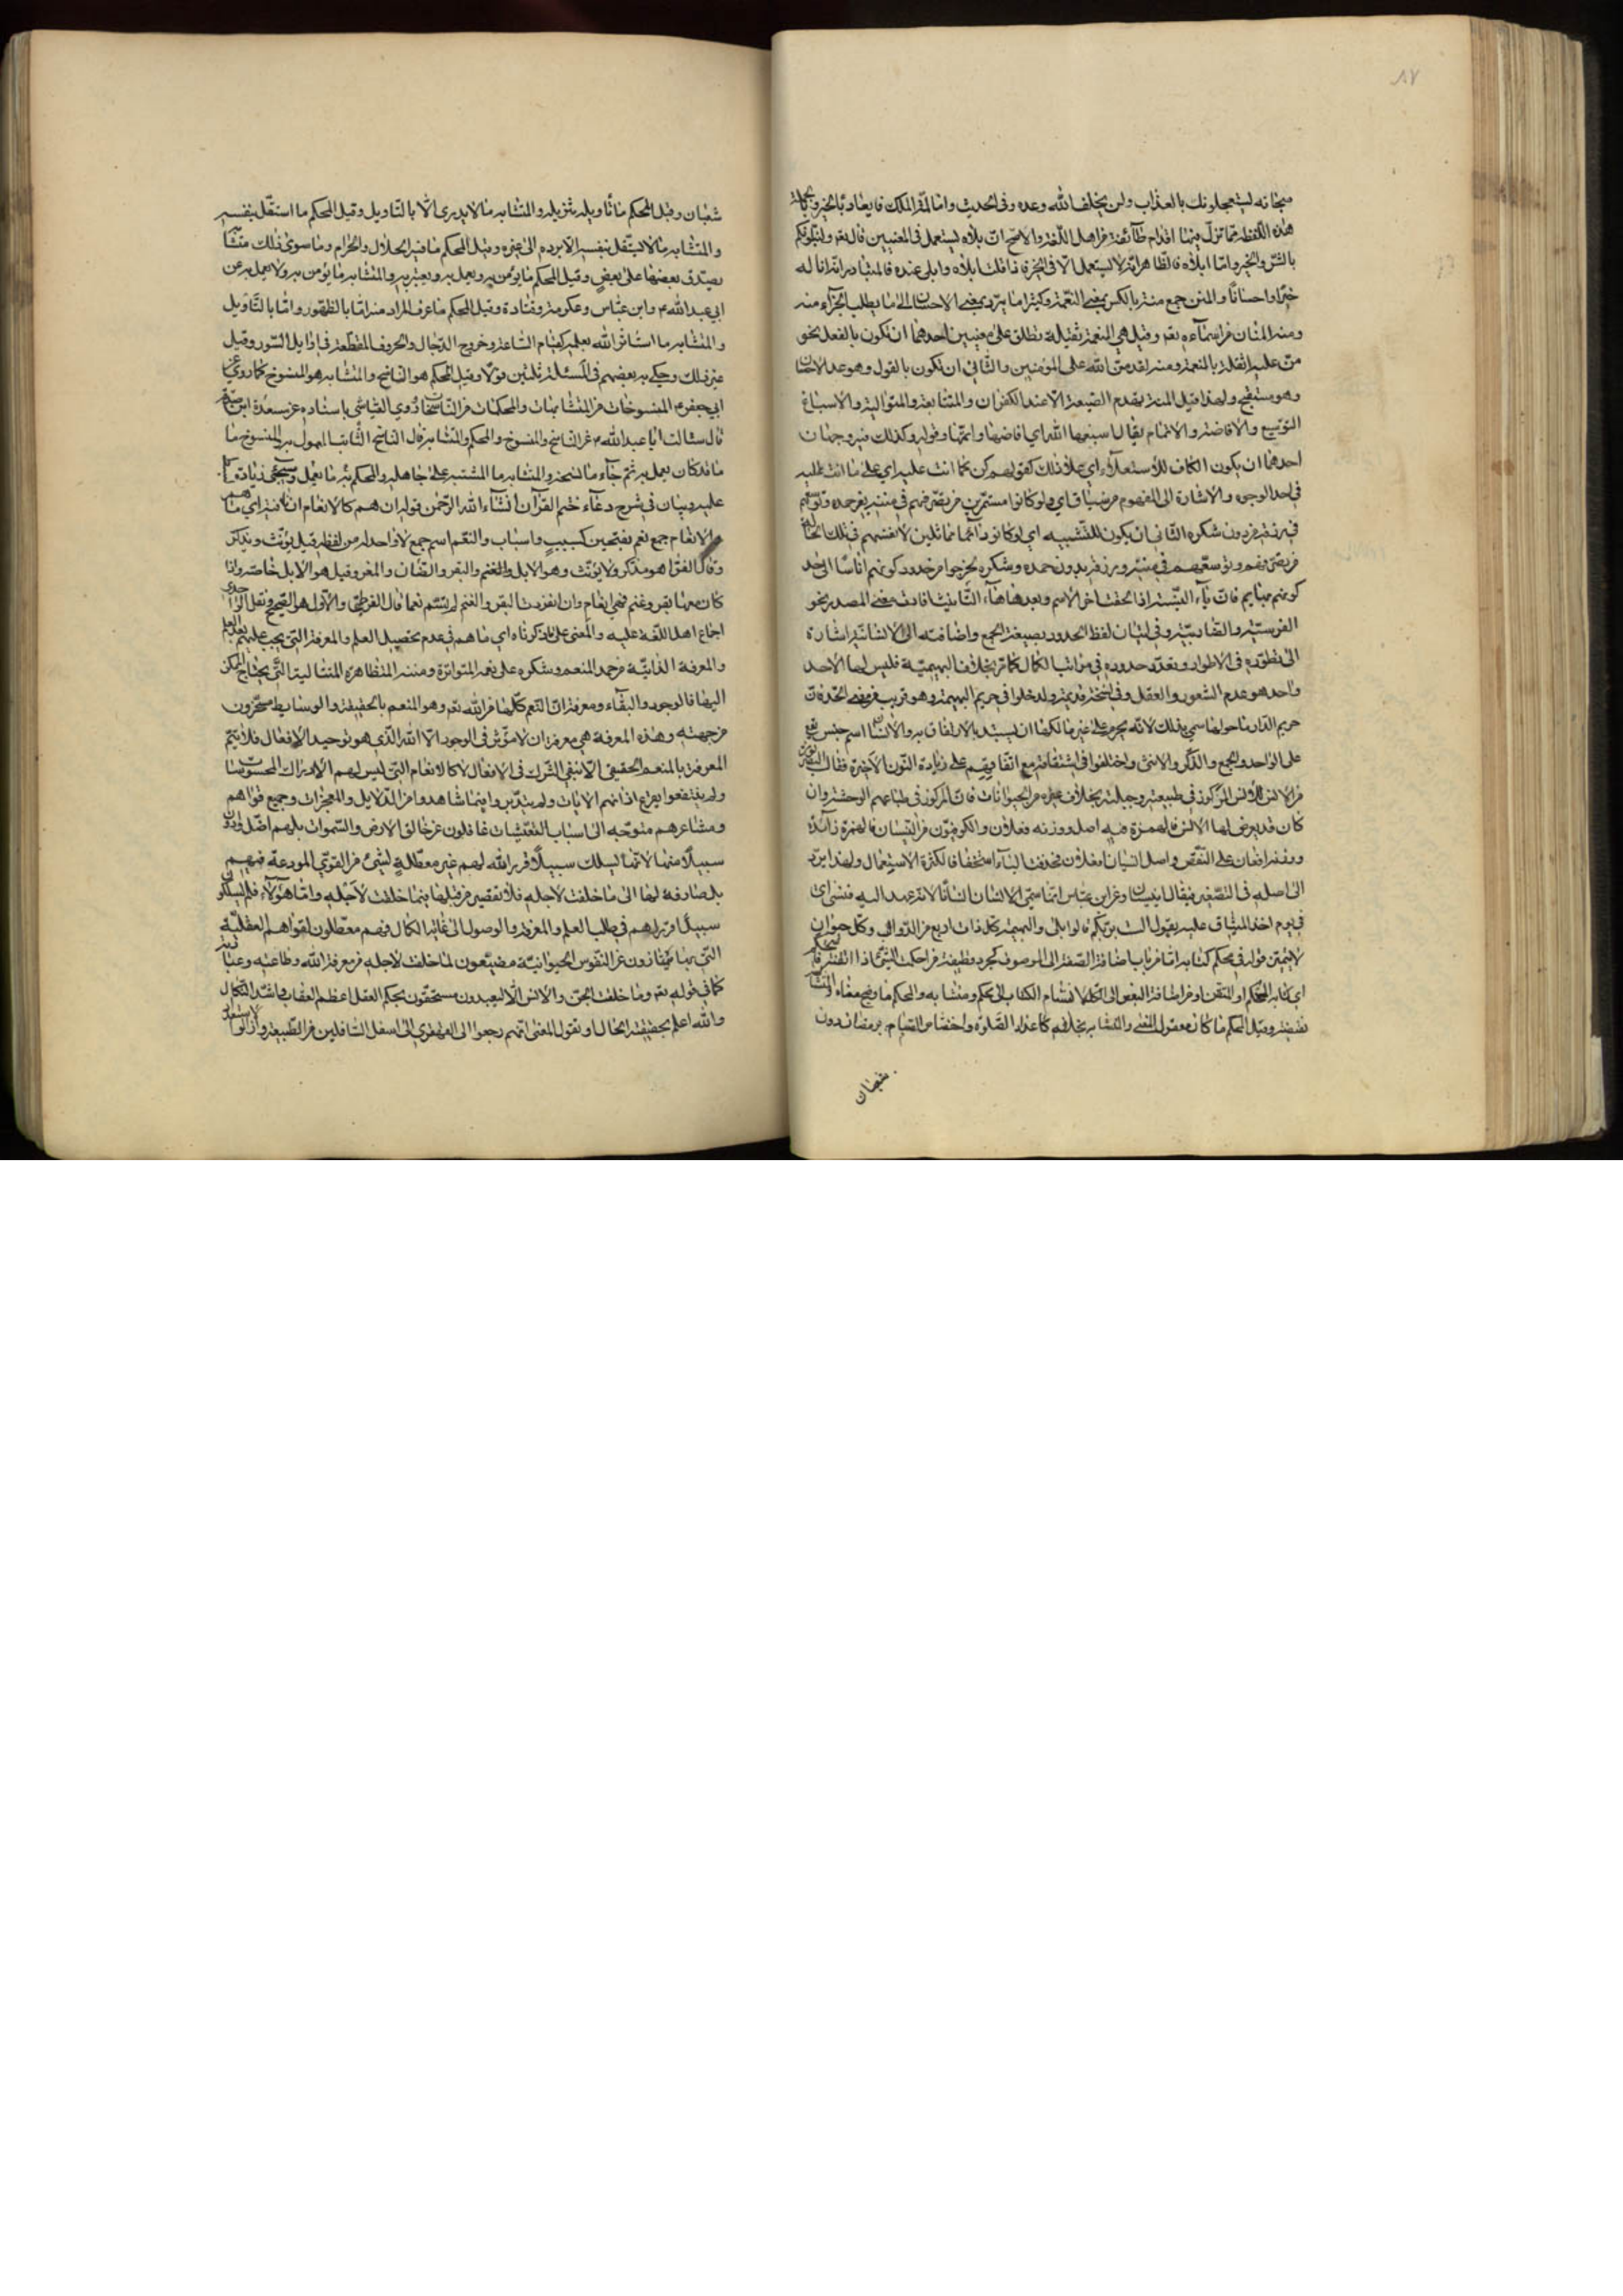 ٨٧
سبحانه يستعجلونك بالعذاب ولن يخلف الله وعده وفى الحديث واما لمة الملك فايعاد بالخير وبكلمة
هذه اللفظة مما تزل فيها اقدام طائفة من اهل اللغة والاصح ان بلاه يستعمل فى المعنيين قال تعم ولنبلونكم
بالشر والخير واما ابلاه فالظاهر انه لا يستعمل الا فى الخير فاذا قلت ابلاه وابلى عنده فالمتبادر انه اناله
خيرا واحسانا والمنن جمع منة بالكسر بمعنى النعمة وكثيرا ما يرد بمعنى الاحسان الى ما يطلب الجزاء منه
ومنه المنان من اسمائه تعم وقيل هى النعمة الثقيلة وتطلق على معنيين احدهما ان تكون بالفعل نحو
من عليه اثقله بالنعمة ومنه لقد من الله على المؤمنين والثانى ان تكون بالقول وهو عد الاحسان
وهو مستقبح ولهذا قيل المنة تهدم الصنيعة الا عند الكفران والمتتابعة والمتوالية والاسباغ
التوسيع والافاضة والاتمام يقال اسبغها الله اى افاضها واتمها وقوله وكذلك فيه وجهان
احدهما ان يكون الكاف للاستعلاء اى على ذلك كقولهم كن كما انت عليه اى على ما انت عليه
فى احد الوجوه والاشارة الى المفهوم من سياق اى ولو كانوا مستمرين من تصرفهم فى مننه بغير حمده وتوسعهم
فى رزقه من دون شكره الثانى ان يكون للتشبيه اى لو كانوا دائما مماثلين لانفسهم فى تلك الحالة
من تصرفهم وتوسعهم فى مننه ورزقه بدون حمده وشكره لخرجوا من حدود كونهم اناسا الى حد
كونهم بهايم فان ياء النسبة اذا لحقت اخر الاسم وبعدها هاء التانيث افادت معنى المصدر نحو
الفرسية والضاربية وفى اتيان لفظ الحدود بصيغة الجمع واضافته الى الانسانية اشارة
الى تطوره فى الاطوار وتعدد حدوده فى مراتب الكمال كما مر بخلاف البهيمية فليس لها الا حد
واحد هو عدم الشعور والعقل وفى نسخة قديمة ولدخلوا فى حريم البهيمة وهو قريب من معنى الحد فان
حريم الدار ما حولها سمى بذلك لانه يحرم على غير مالكها ان يستبد بالارتفاق به والانسان اسم جنس يقع
على الواحد والجمع والذكر والانثى واختلفوا فى اشتقاقه مع اتفاقهم على زيادة النون الاخيرة فقال البصريون
من الانس للانس المركوز فى طبيعته وجبلته بخلاف غيره من الحيوانات فان المركوز فى طباعهم الوحشة وان
كان قد يعرض لها الانس فالهمزة فيه اصل ووزنه فعلان والكوفيون من النسيان فالهمزة زائدة
ووزنه افعان على النقص واصل انسيان افعلان فحذفت الياء استخفافا لكثرة الاستعمال ولهذا يرد
الى اصله فى التصغير فيقال انيسيان وعن ابن عباس انما سمى الانسان انسانا لانه عهد اليه فنسى اى
فى يوم اخذ الميثاق عليه بقول الست بربكم قالوا بلى والبهيمة كل ذات اربع من الدواب وكل حيوان
لا يميز قوله فى محكم كتابه اما من باب اضافة الصفة الى الموصوف كجرد قطيفة من احكمت الشئ اذا اتقنته
اى كتابه المحكم او المتقن او من اضافة البعض الى الكل لانقسام الكتاب الى محكم ومتشابه والمحكم ما وضح معناه والمتشابه
نقيضه وقيل المحكم ما كان معقول المعنى والمتشابه بخلافه كاعداد الصلوة واختصاص الصيام برمضان دون
شعبان
شعبان وقيل المحكم ما تاويله تنزيله والمتشابه ما لا يدرى الا بالتاويل وقيل المحكم ما استقل بنفسه
والمتشابه ما لا يستقل بنفسه الا برده الى غيره وقيل المحكم ما فيه الحلال والحرام وما سوى ذلك متشابه
يصدق بعضها على بعض وقيل المحكم ما يؤمن به ويعمل به ويعتبر به والمتشابه ما يؤمن به ولا يعمل به عن
ابى عبد الله ع وابن عباس وعكرمة وقتادة وقيل المحكم ما عرف المراد منه اما بالظهور واما بالتاويل
والمتشابه ما استاثر الله بعلمه كقيام الساعة وخروج الدجال والحروف المقطعة فى اوايل السور وقيل
غير ذلك وحكى بعضهم فى المسئلة ثلثين قولا وقيل المحكم هو الناسخ والمتشابه هو المنسوخ كما روى عن
ابى جعفر ع المنسوخات من المتشابهات والمحكمات من الناسخات وروى العياشى باسناده عن مسعدة ابن صدقة
قال سئالت ابا عبد الله ع عن الناسخ والمنسوخ والمحكم والمتشابه قال الناسخ الثابت المعمول به والمنسوخ ما
ما قد كان يعمل به ثم جاء ما نسخه والمتشابه ما اشتبه على جاهله والمحكم ما يعمل به وسيجئ زيادة كلام
عليه وبيان فى شرح دعاء ختم القران انشاء الله الرحمن قوله ان هم كالانعام ان نافية اى ما هم
والانعام جمع نعم بفتحتين كسبب واسباب والنعم اسم جمع لا واحد له من لفظه قيل يؤنث ويذكر
وقال الفراء هو مذكر ولا يؤنث وهو الابل والغنم والبقر والضان والمعز وقيل هو الابل خاصة واذا
كان معها بقر وغنم فهى انعام وان انفردت البقر والغنم لم تسم نعما قال القرطبى والاول هو الصحيح ونقل الواحدى
اجماع اهل اللغة عليه والمعنى على ما ذكرناه اى ما هم فى عدم تحصيل العلم والمعرفة التى يجب عليهم
والمعرفة الذاتية من حمد المنعم وشكره على نعمه المتواترة ومننه المتظاهرة المتتالية التى يحتاج الممكن
اليها فالوجود والبقاء ومعرفة ان النعم كلها من الله تعم وهو المنعم بالحقيقة والوسايط مسخرون
من جهته وهذه المعرفة هى معرفة ان لا مؤثر فى الوجود الا الله الذى هو توحيد الافعال فلا يتم
المعرفة بالمنعم الحقيقى الا بنفى الشرك فى الافعال الا كالانعام التى ليس لهم الا ادراك المحسوسات
ولم ينتفعوا بقرع اذانهم الايات ولم يتدبروا فيما شاهدوا من الدلايل والمعجزات وجميع قواهم
ومشاعرهم متوجه الى اسباب التعيشات غافلون عن خالق الارض والسموات بل هم اضل
سبيلا منها لانها تسلك سبيلا قرر الله لهم غير معطلة لشئ من القوى المودعة فيهم
بل صارفة لها الى ما خلقت لاجله فلا تقصير من قبلها فيما خلقت لاجله واما هؤلاء فلم يسلكوا
سبيلا قرر لهم فى طلب العلم والمعرفة والوصول الى غاية الكمال فهم معطلون لقواهم العقلية
التى بها يمتازون عن النفوس الحيوانية مضيعون لما خلقت لاجله من معرفة الله وطاعته وعبادته
كما فى قوله تعم وما خلقت الجن والانس الا ليعبدون مستحقون بحكم العقل اعظم العقاب واشد النكال
والله اعلم بحقيقة الحال او نقول المعنى انهم رجعوا الى القهقرى الى اسفل السافلين من الطبيعة وازالوا